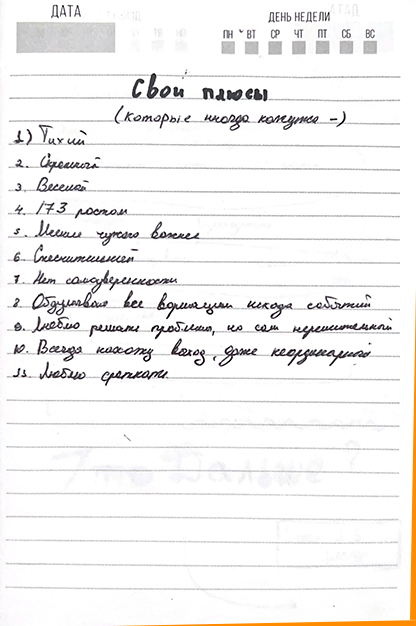 ДАТА
ДЕНЬ НЕДЕЛИ
ПН ВТ СР ЧТ ПТ СБ ВС
Свои плюсы
(которые иногда кажутся -)
1) Тихий
2. Скромный
3. Веселой
4. 173 ростом
5. Мнение чужого важнее
6. Стеснительней
7. Нет самоуверенности
8. Обдумываю все вормации исхода событий
9. Люблю решать проблемы, но сам нерешительный
10. Всегда нахожу выход, даже неординарной
11. Люблю